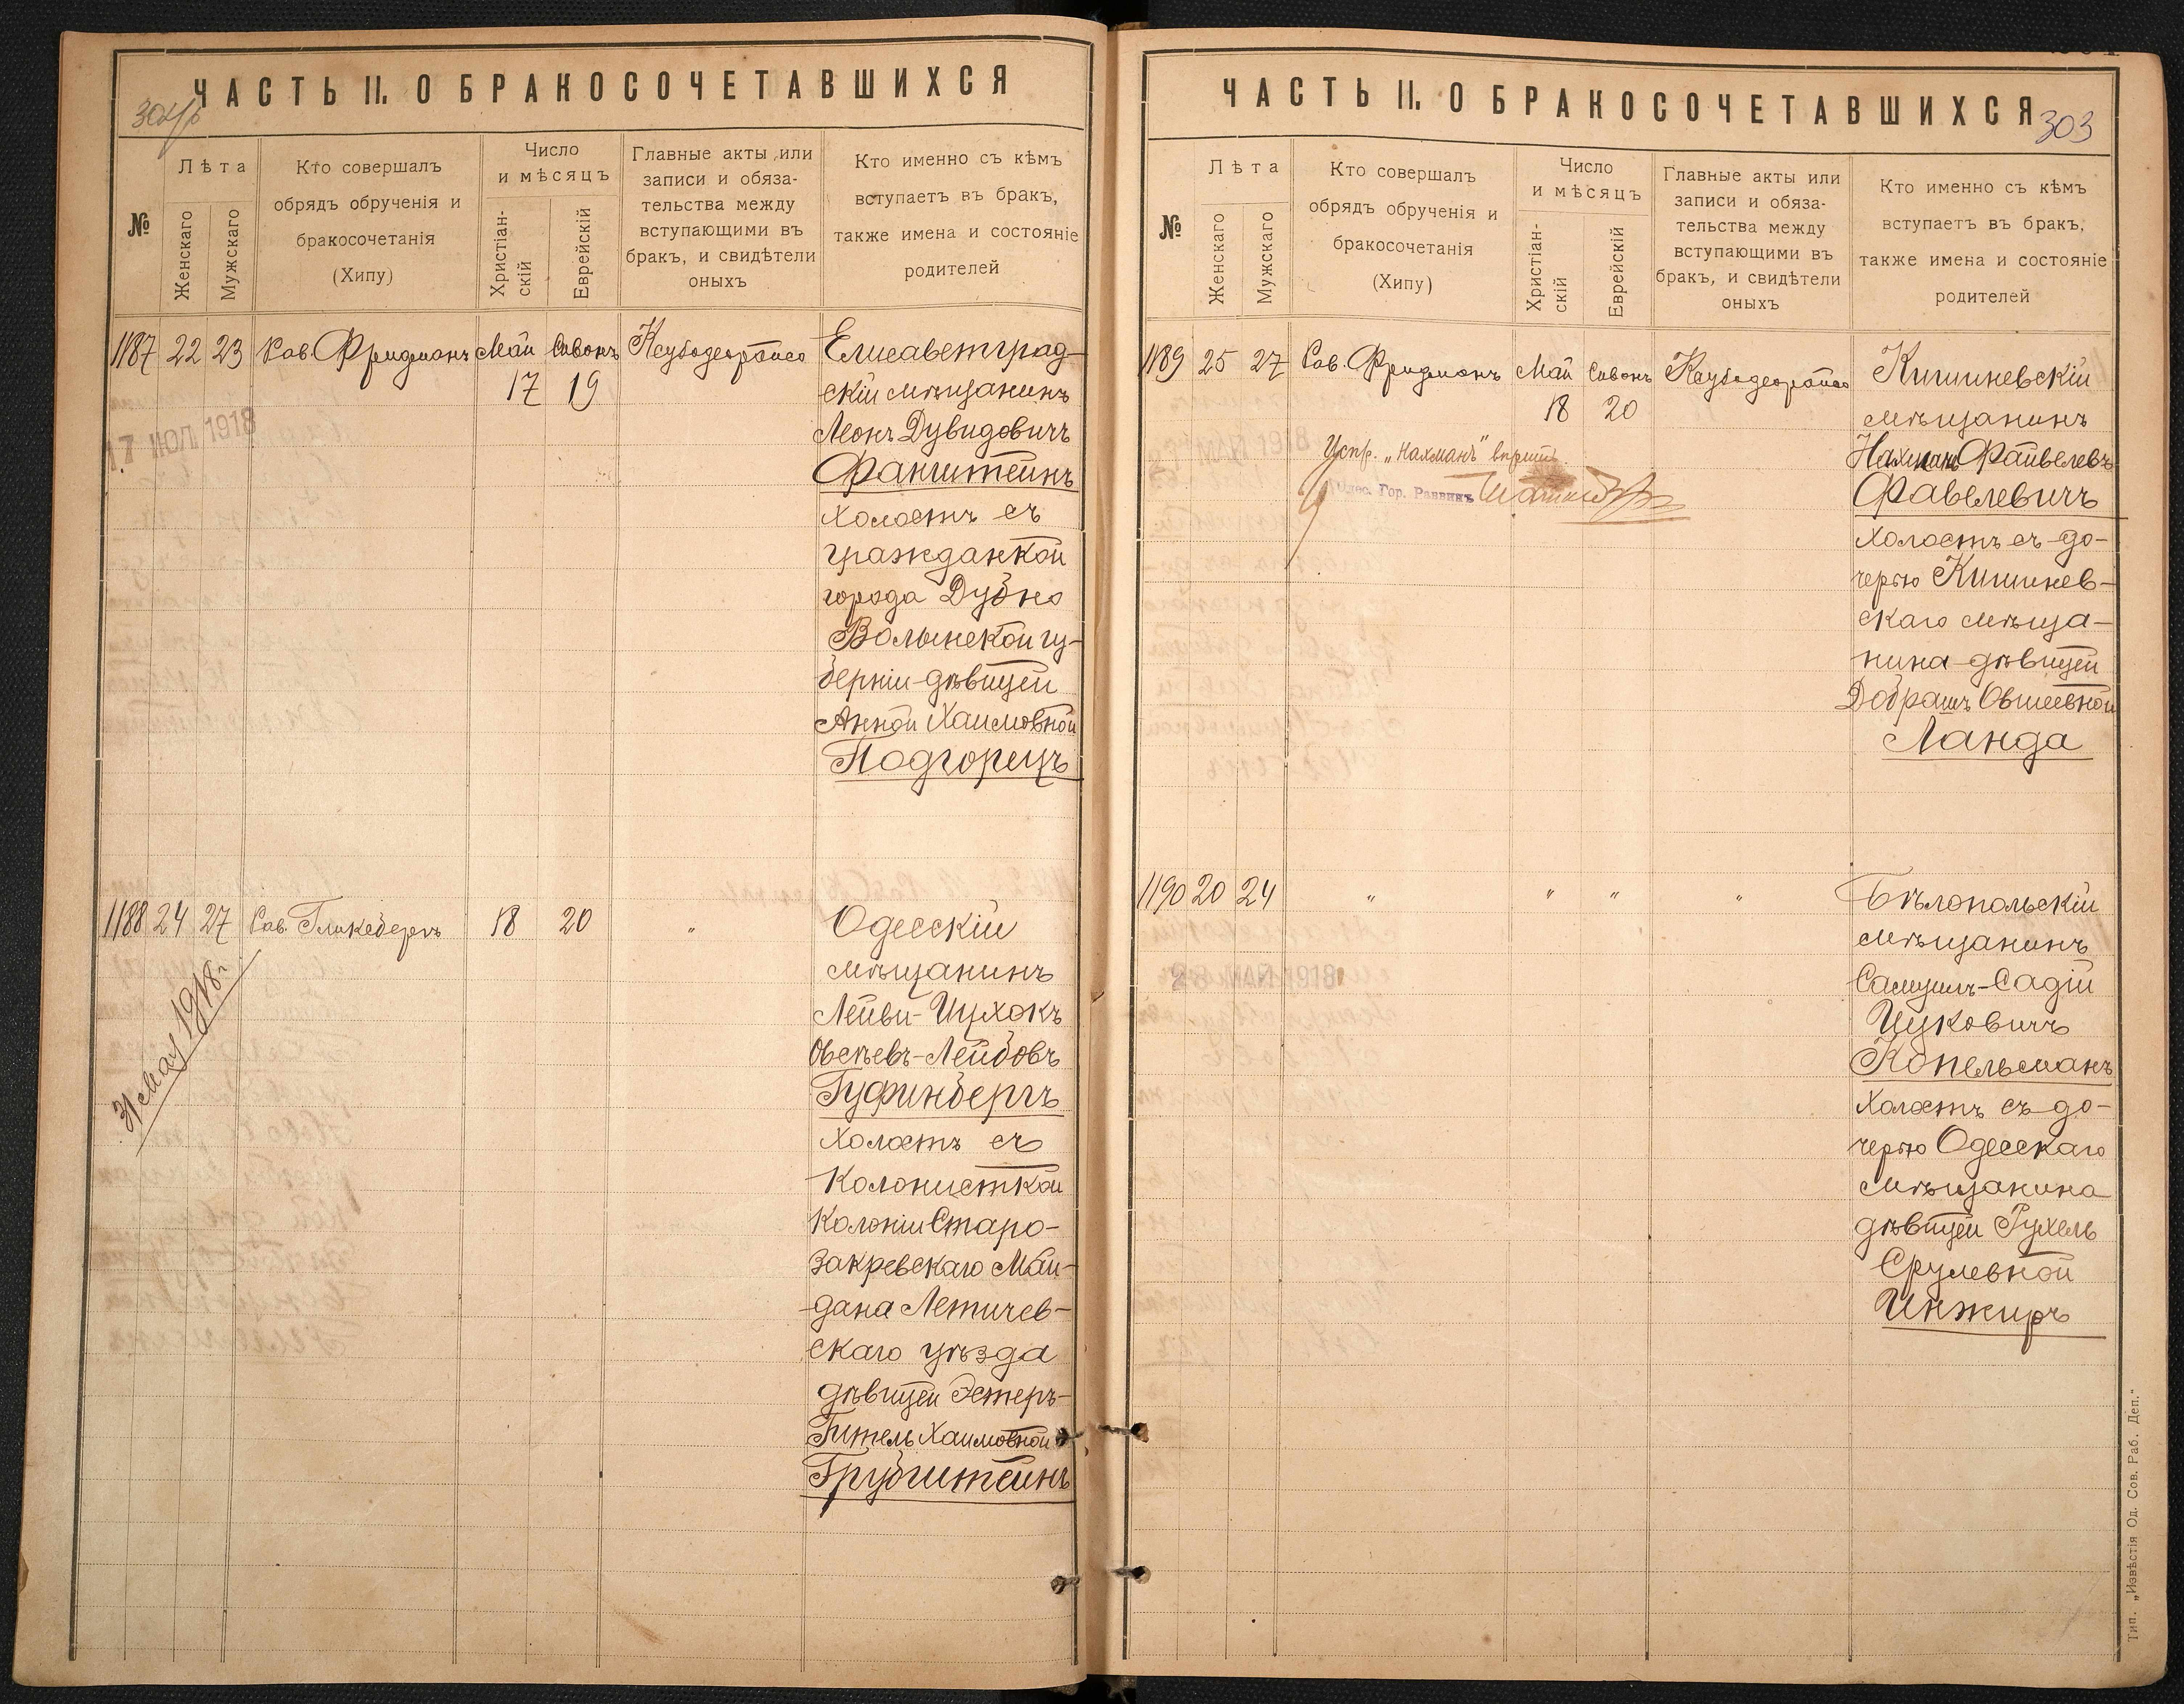 ЧАСТЬ II. О БРАКОСОЧЕТАВШИХСЯ
№
Лѣта
Женскаго
Мужскаго
Кто совершалъ
обрядъ обрученія и
бракосочетанія
(Хипу)
Число
и мѣсяцъ
Христіан-
скій
Еврейскій
Главные акты или
записи и обяза-
тельства между
вступающими въ
бракъ, и свидѣтели
оныхъ
Кто именно съ кѣмъ
вступаетъ въ бракъ,
также имена и состояніе
родителей
1187 22 23 Рав. Фридманъ Май Сивонъ Елисаветград-
17 19 скій мѣщанинъ
Леонъ Дувидовичъ
17 ІЮЛ 1918
Файнштейнъ
холостъ съ
гражданкой
города Дубно
Волынской гу-
берніи дѣвицей
Анной Хаимовной
Подгорецъ
1188 24 27 Рав. Гликбергъ 18 20 " Одесскій
мѣщанинъ
Лейви-Ицхокъ
Овсѣевъ-Лейбовъ
Гуфинбергъ
31 мая 1918 г.
холостъ съ
колонисткой
колоніи Старо-
закревскаго Май-
дана Летичев-
скаго уѣзда
дѣвицей Эстеръ-
Гитель Хаимовной
Грубштейнъ
ЧАСТЬ II. О БРАКОСОЧЕТАВШИХСЯ
303
№
Лѣта
Женскаго
Мужскаго
Кто совершалъ
обрядъ обрученія и
бракосочетанія
(Хипу)
Число
и мѣсяцъ
Христіан-
скій
Еврейскій
Главные акты или
записи и обяза-
тельства между
вступающими въ
бракъ, и свидѣтели
оныхъ
Кто именно съ кѣмъ
вступаетъ въ бракъ,
также имена и состояніе
родителей
1189 25 27 Рав. Фридманъ Май Сивонъ Кишиневскій
18 20 мѣщанинъ
"Нахманъ" вѣрить
Одес. Гор. Раввинъ
Нахманъ Файвелевъ
Фавелевичъ
холостъ съ до-
черью Кишинев-
скаго мѣща-
нина дѣвицей
Добрашъ Овшеевной
Ланда
1190 20 24 " " " " Бѣлопольскій
мѣщанинъ
Самуилъ-Садій
Ицковичъ
Копельманъ
холостъ съ до-
черью Одесскаго
мѣщанина
дѣвицей Рухель
Срулевной
Инжиръ
Тип. „Извѣстія Од. Сов. Раб. Деп."